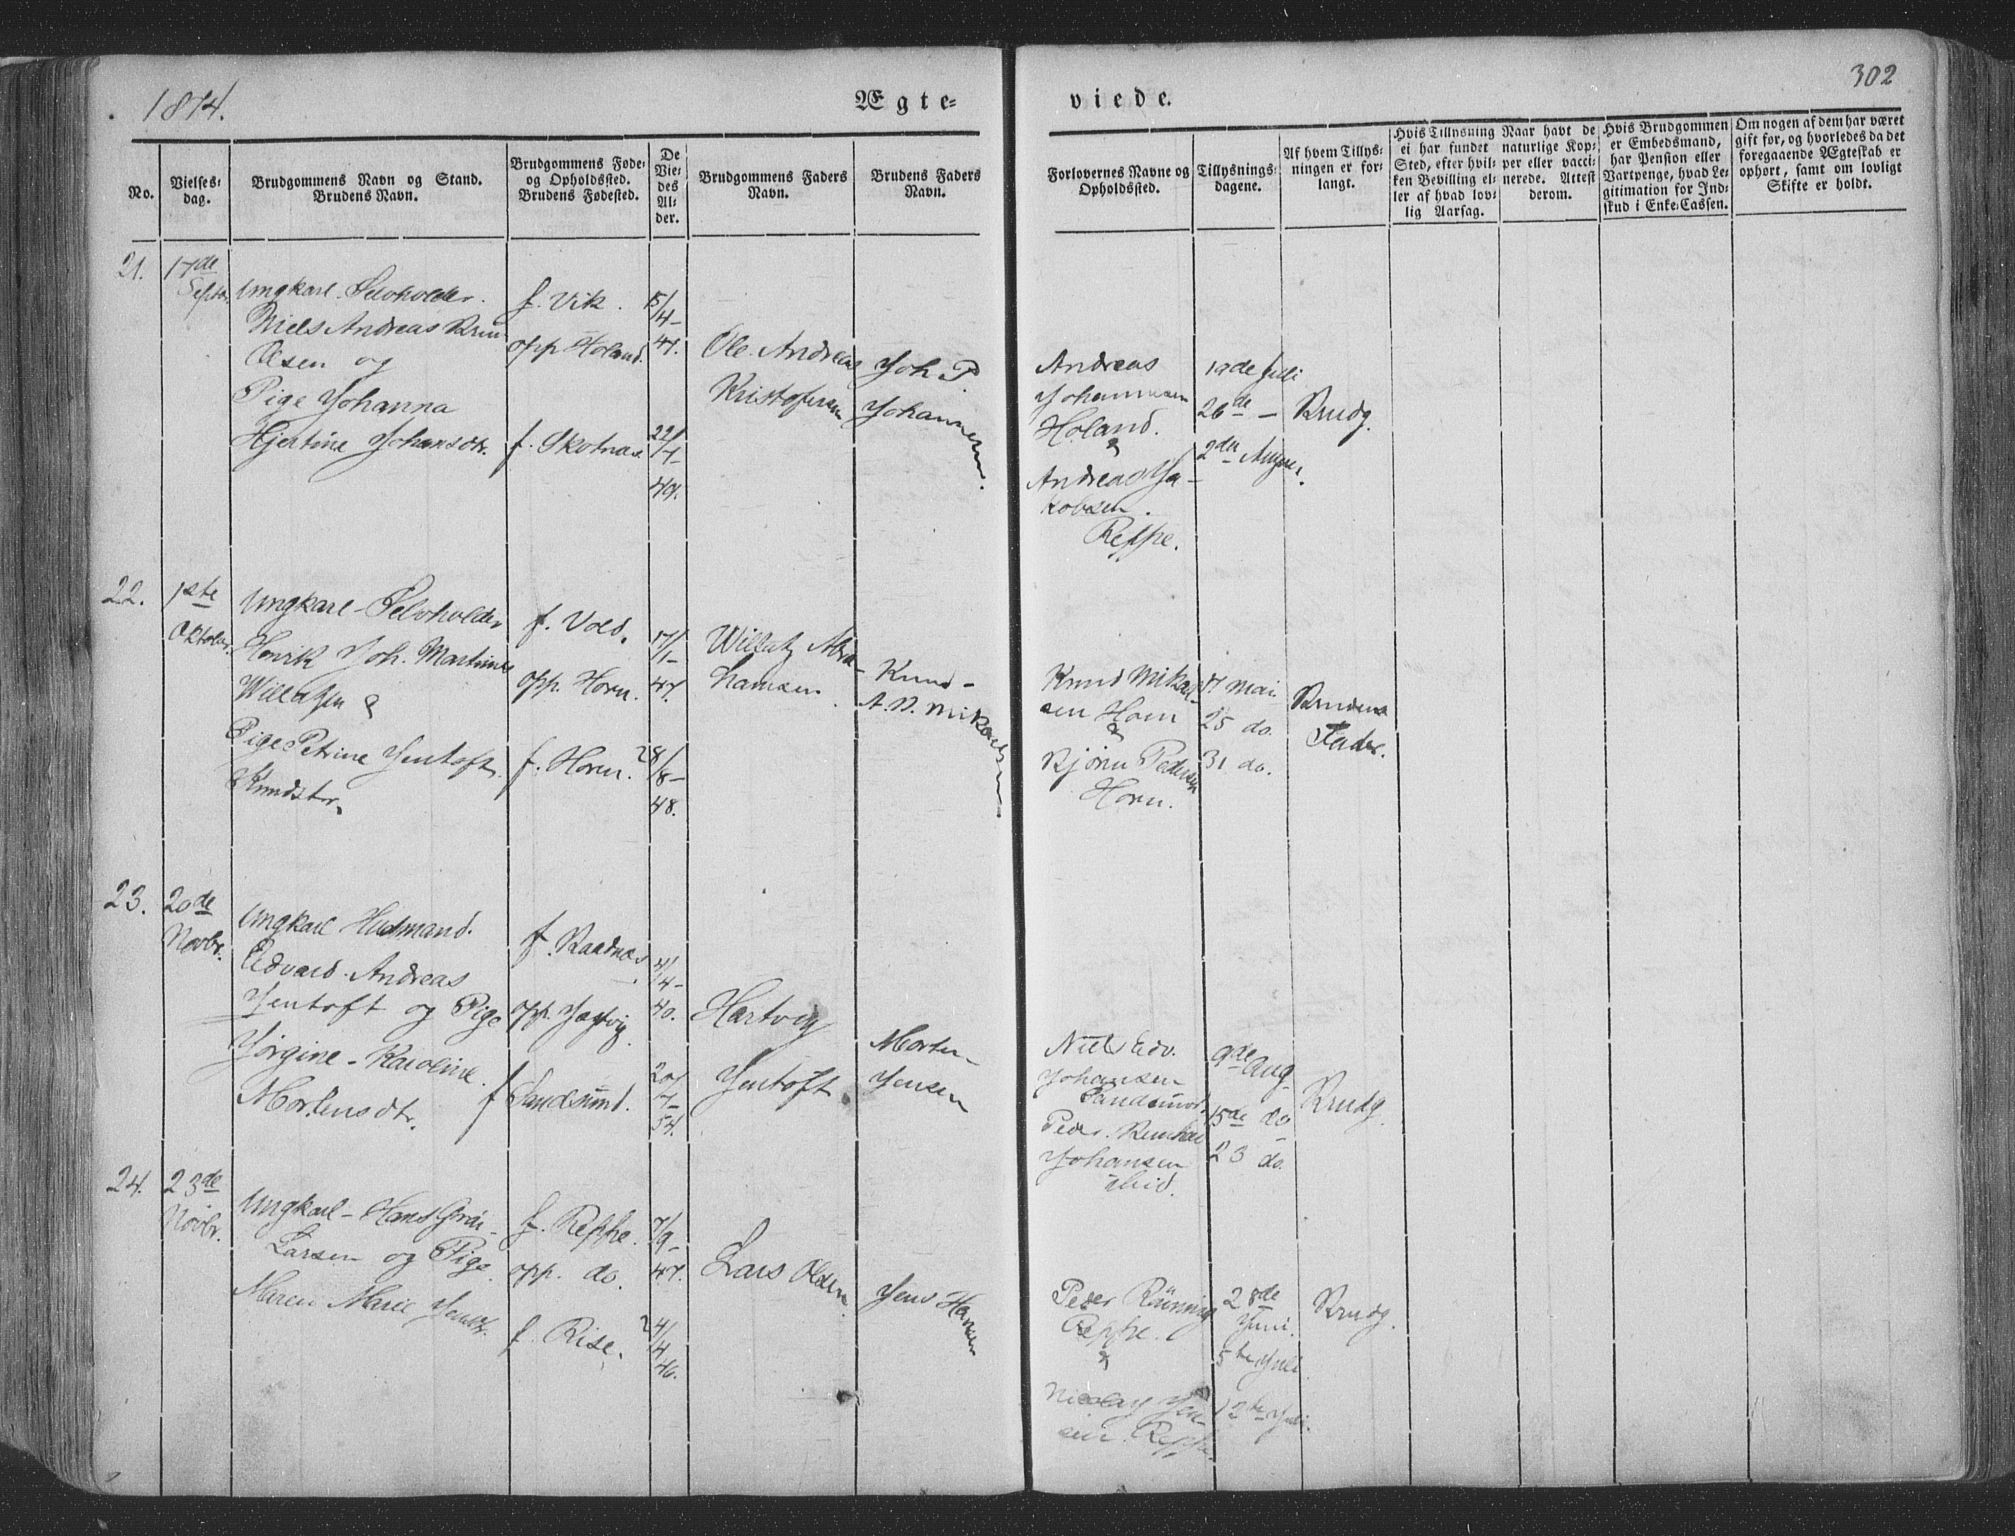 1874.
Ægte=
viede.
302
No.
Vielses=
dag.
Brudgommens Navn og Stand.
Brudens Navn.
Brudgommens Føde=
og Opholdssted.
Brudens Fødested.
De
Vie=
des
Al=
der.
Brudgommens Faders
Navn.
Brudens Faders
Navn.
Forlovernes Navne og
Opholdssted.
Tillysnings=
dagene.
Af hvem Tillys=
ningen er for=
langt.
Hvis Tillysning
ei har fundet
Sted, efter hvil=
ken Bevilling el=
ler af hvad lov=
lig Aarsag.
Naar havt de
naturlige Kop=
per eller vacci=
nerede. Attest
derom.
Hvis Brudgommen
er Embedsmand,
har Pension eller
Vartpenge, hvad Le=
gitimation for Ind=
skud i Enke=Cassen.
Om nogen af dem har været
gift før, og hvorledes da det
foregaaende Ægteskab er
ophørt, samt om lovligt
Skifte er holdt.
21.
17de
Septbr.
Ungkarl Selvholder
Niels Andreas
Olsen og
Pige Johanna
Hjertine Johansdtr.
f. Vik.
opp Holand.
f. Skotnæs
15/4-
47.
22/1-
49.
Ole Andreas
Kristofersen
Joh P.
Johannesen.
Andreas
Johannesen
Holand.
&
Andreas Ja-
kobsen.
Reppe.
19de Juli
26de -
2den August.
Brudg.
22.
1ste
Oktober.
Ungkarl - Selvholder
Henrik Joh. Martinus
Willatzen &
Pige Petrine Jentoft
Knudsdtr.
f. Vold.
opp. Horn.
f. Horn.
17/1-
47.
28/8-
48.
Willatz Abra-
hamsen.
Knud -
A. N. Mikaelsen
Knud Mikael-
sen Horn
&
Bjørn Pedersen
Horn.
17 Mai.
25 do.
31 do.
Brudens
Fader.
23.
20de
Novbr.
Ungkarl Husmand.
Edvard Andreas
Jentoft og Pige
Jørgine - Karoline
Mortensdtr.
f. Raadnæs
opp. Jagtvig
f Sandsund.
4/4-
40.
20/7-
54.
Hartvig
Jentoft
Morten
Jensen
Niels Edv.
Johansen
Sandsund.
Peder
Johansen
ibid.
9de Aug.
15de do
23 do.
Brudg.
24.
23de
Novbr.
Ungkarl - Hans
Larsen og Pige
Maren Marie Jensdtr.
f. Reppe.
opp. do.
f. Rise.
7/9-
47.
24/4
46.
Lars Olsen
Jens Hansen
Peder Rønning
Reppe.
&
Nicolay Jen-
sen Reppe.
28de
Juni.
5te Juli
12te Juli.
Brudg.